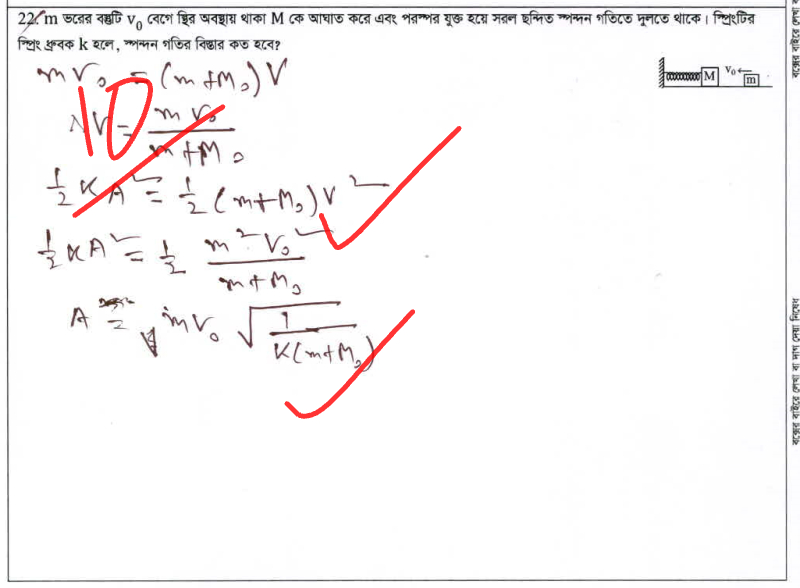 22. m ভরের বস্তুটি v₀ বেগে স্থির অবস্থায় থাকা M কে আঘাত করে এবং পরস্পর যুক্ত হয়ে সরল ছন্দিত স্পন্দন গতিতে দুলতে থাকে। স্প্রিংটির
স্প্রিং ধ্রুবক k হলে, স্পন্দন গতির বিস্তার কত হবে?
M v₀ m
m v₀ = (m+M₀) V
10
V = m v₀ / m+M₀
½ K A² = ½ (m+M₀) V²
½ K A² = ½ m² v₀² / m+M₀
A = m v₀ √ 1 / K(m+M₀)
বক্সের বাইরে লেখা বা দাগ দেয়া নিষেধ
বক্সের বাইরে লেখা ব